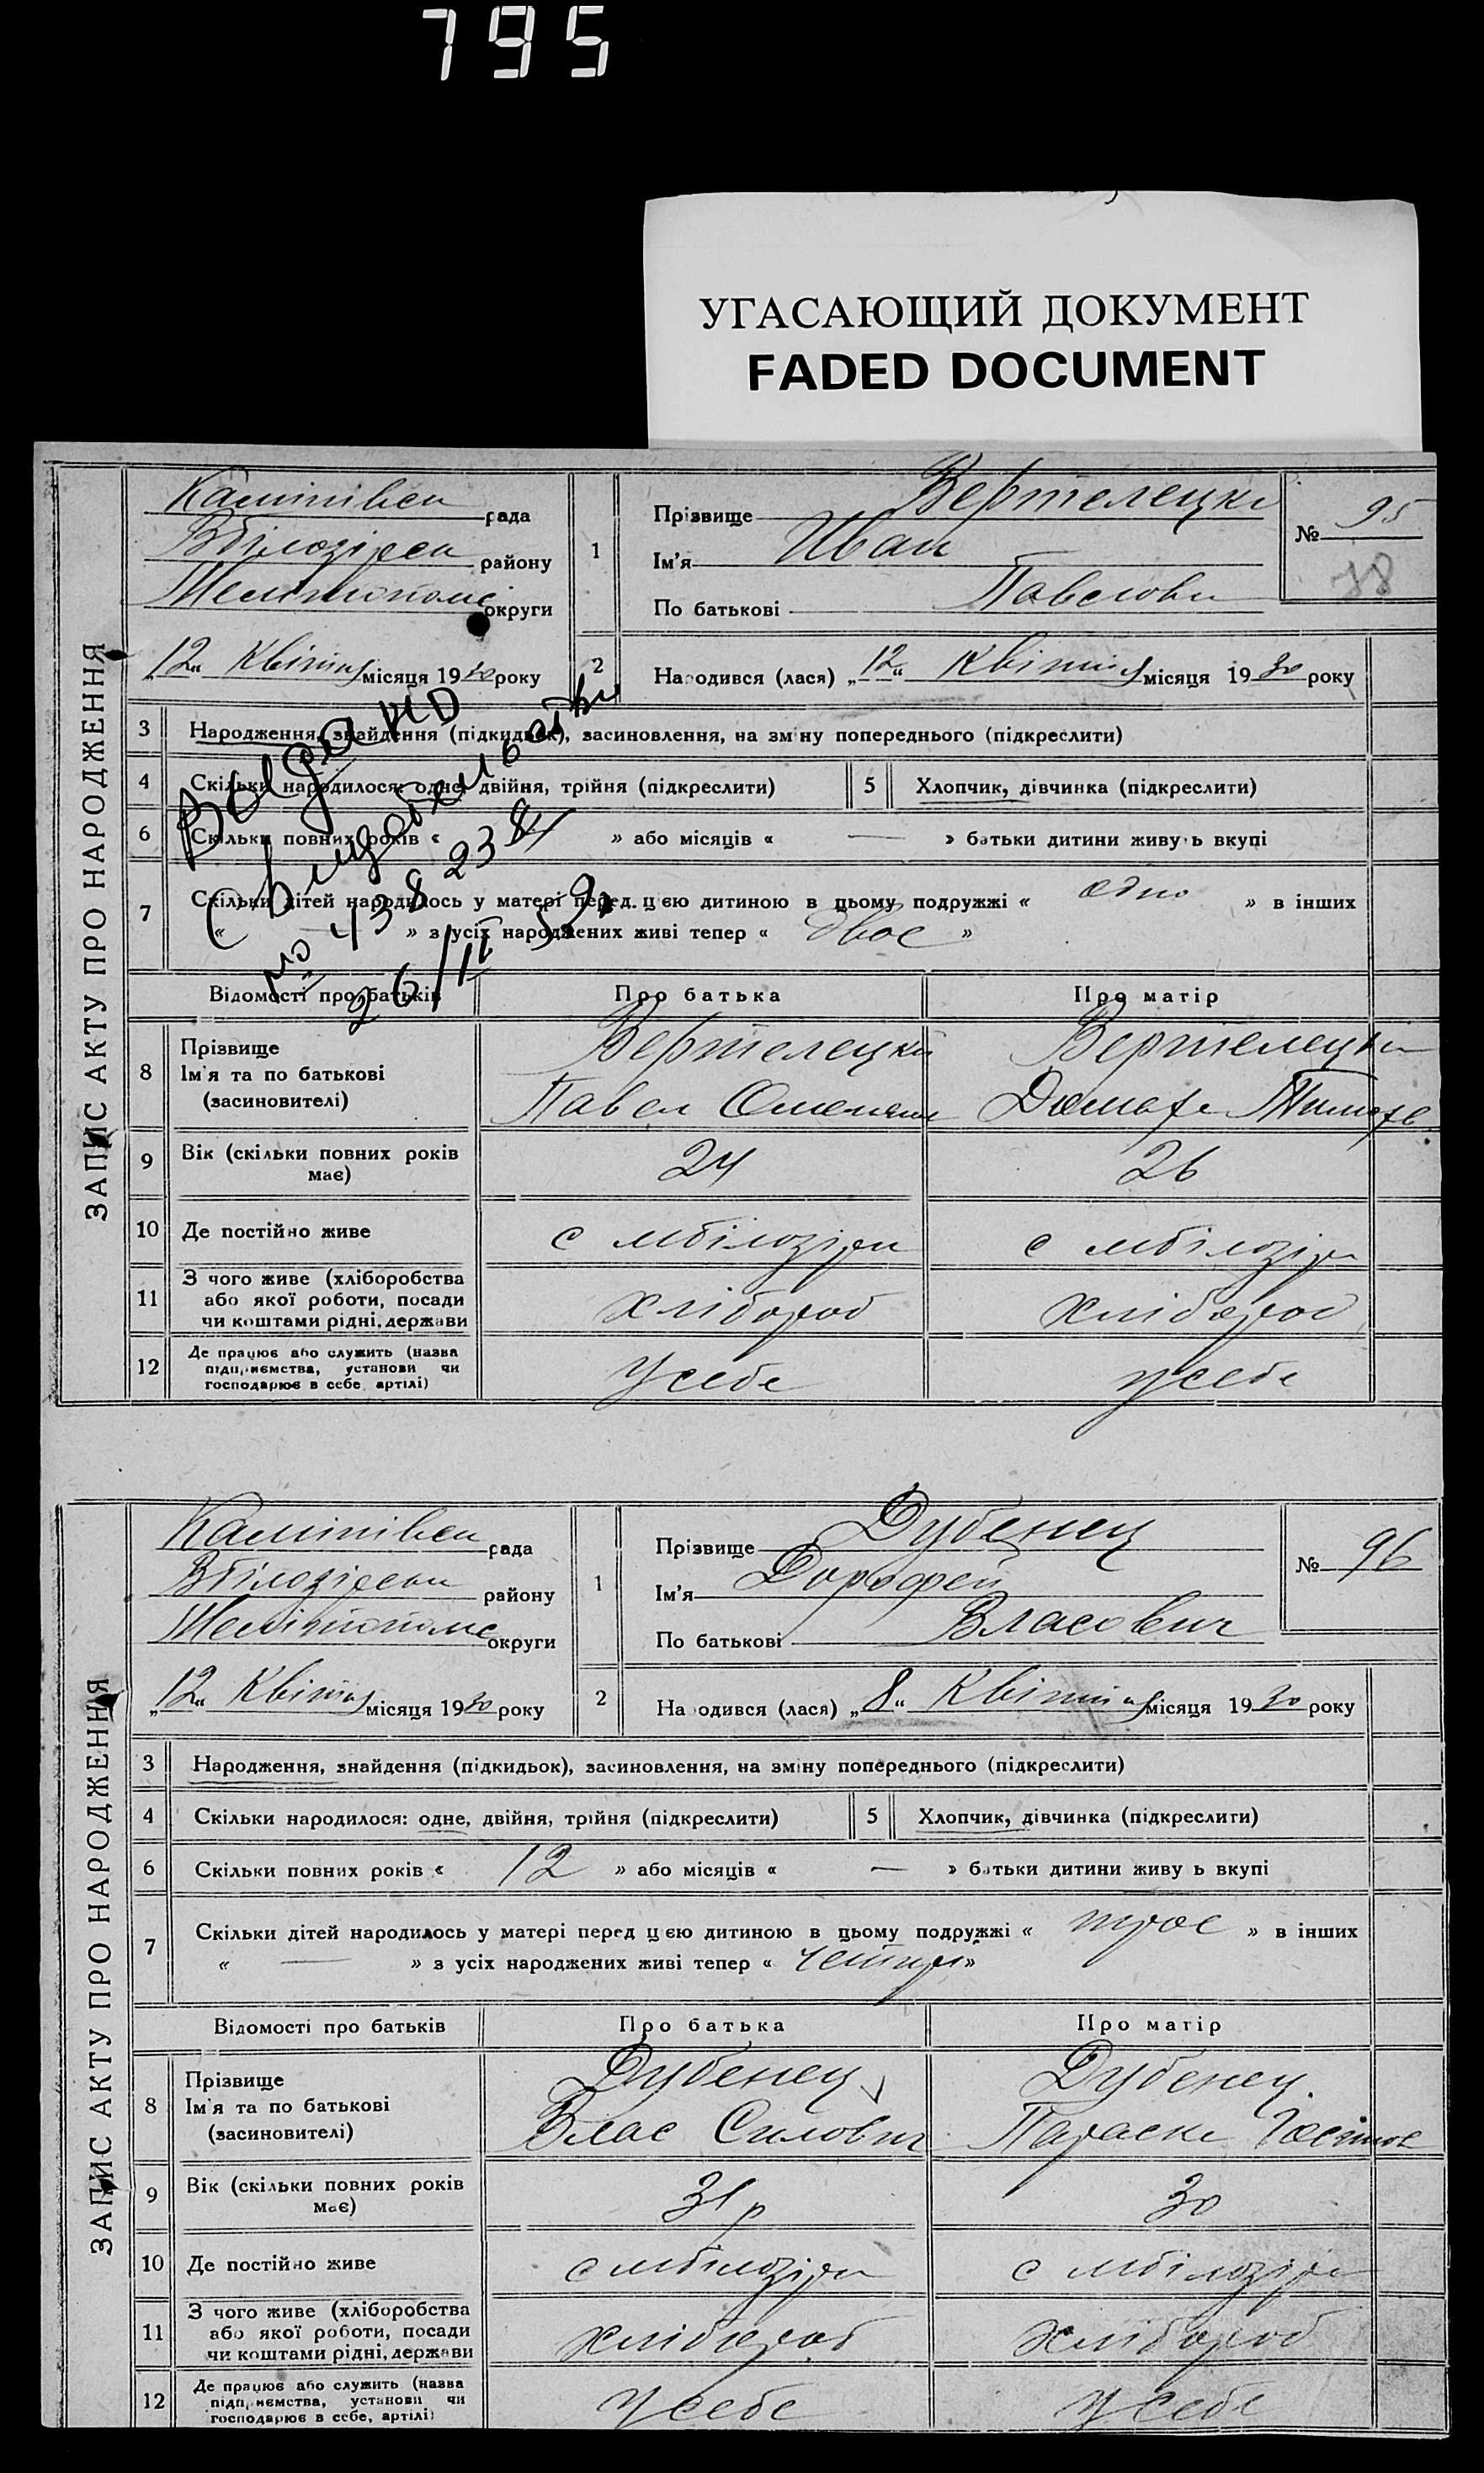 795
УГАСАЮЩИЙ ДОКУМЕНТ
FADED DOCUMENT
ЗАПИС АКТУ ПРО НАРОДЖЕННЯ
рада
району
округи
„12“ Квітня місяця 1930 року
1
Прізвище Вертелецкі
Ім'я Иван
По батькові Павлови
№ 95
78
2 Народився (лася) „12“ Квітня місяця 1930 року
3 Народження, знайдення (підкидьок), засиновлення, на зміну попереднього (підкреслити)
4 Скільки народилося: одне, двійня, трійня (підкреслити) 5 Хлопчик, дівчинка (підкреслити)
6 Скільки повних років « » або місяців « — » батьки дитини живуть вкупі
7 Скільки дітей народилось у матері перед цією дитиною в цьому подружжі « одно » в інших
« » з усіх народжених живі тепер « двое »
Видано
№ 438238
26/II 52
Відомості про батьків Про батька Про матір
8 Прізвище
Ім'я та по батькові
(засиновителі)
Вертелецки
Павел
Вертелецки
9 Вік (скільки повних років
має)
24 26
10 Де постійно живе
с мбілозірки с мбілозірки
11 З чого живе (хліборобства
або якої роботи, посади
чи коштами рідні, держави
хлібороб хлібороб
12 Де працює або служить (назва
підприємства, установи чи
господарює в себе, артілі)
У себе у себе
ЗАПИС АКТУ ПРО НАРОДЖЕННЯ
рада
району
округи
„12“ Квітня місяця 1930 року
1
Прізвище Дубенец
Ім'я Дорофей
По батькові Власович
№ 96
2 Народився (лася) „8“ Квітня місяця 1930 року
3 Народження, знайдення (підкидьок), засиновлення, на зміну попереднього (підкреслити)
4 Скільки народилося: одне, двійня, трійня (підкреслити) 5 Хлопчик, дівчинка (підкреслити)
6 Скільки повних років « 12 » або місяців « — » батьки дитини живуть вкупі
7 Скільки дітей народилось у матері перед цією дитиною в цьому подружжі « трое » в інших
« — » з усіх народжених живі тепер « »
Відомості про батьків Про батька Про матір
8 Прізвище
Ім'я та по батькові
(засиновителі)
Дубенец
Влас Силович
Дубенец
Параске
9 Вік (скільки повних років
має)
31 р 30
10 Де постійно живе
с мбілозірки с мбілозірки
11 З чого живе (хліборобства
або якої роботи, посади
чи коштами рідні, держави
хлібороб хлібороб
12 Де працює або служить (назва
підприємства, установи чи
господарює в себе, артілі)
У себе У себе